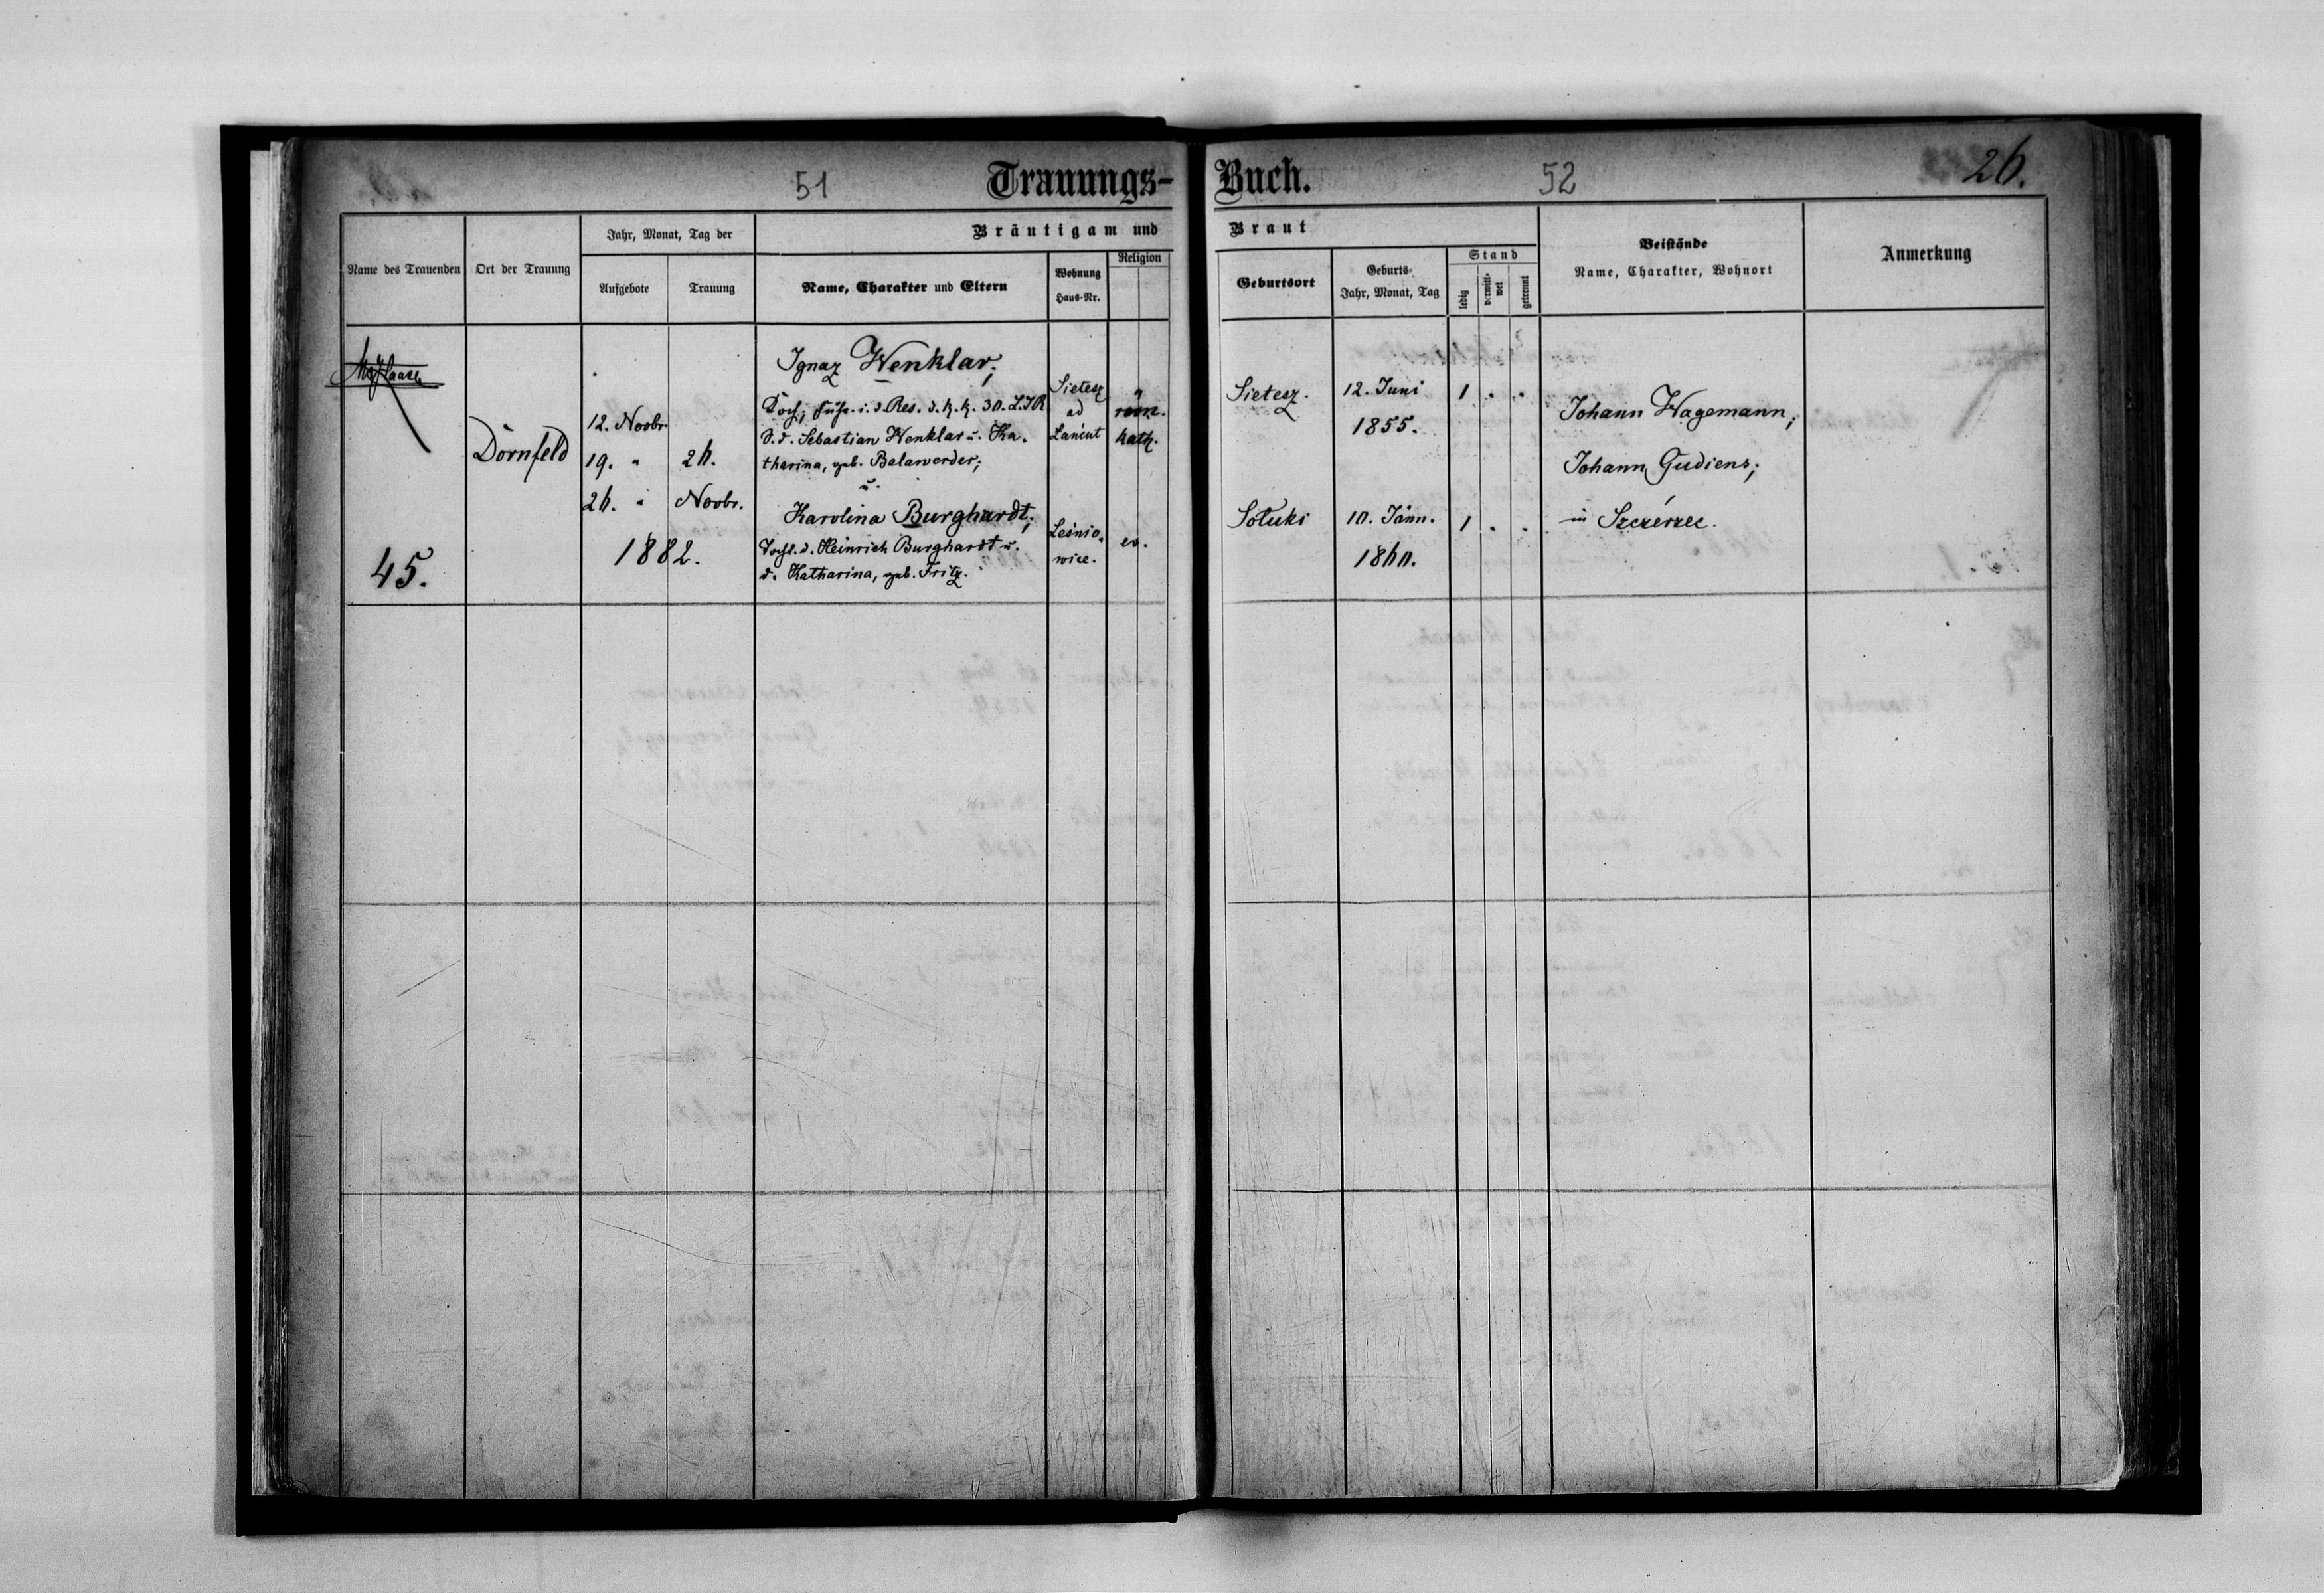 51
Trauungs-
Buch.
52
26.
Name des Trauenden
Ort der Trauung
Jahr, Monat, Tag der
Aufgebote
Trauung
Bräutigam und
Name, Charakter und Eltern
Wohnung
Haus-Nr.
Religion
Braut
Geburtsort
Geburts-
Jahr, Monat, Tag
Stand
ledig
verwit-
wet
getrennt
Beistände
Name, Charakter, Wohnort
Anmerkung
45.
Dornfeld
12. Novbr.
19. "
26. "
26.
Novbr.
1882.
Ignaz Wenklar;
i. d. Res. d. k. k. 30. L.I.R
S. d. Sebastian Wenklar u. Ka-
tharina, geb. Balawerder;
u.
Karolina Burghardt;
Tocht. d. Heinrich Burghardt u.
d. Katharina, geb. Fritz.
Sietesz
ad
Łańcut
Leśnio-
wice.
röm.
kath.
ev.
Sietesz.
12. Juni
1855.
1 . .
Sołuki
10. Jänn.
1860.
1 . .
Johann Wagemann;
Johann Gudiens;
in Szczérzec.